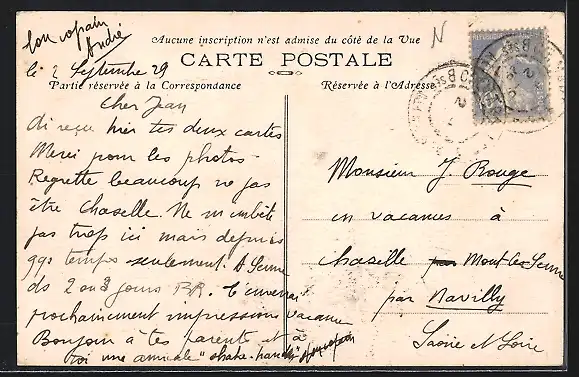 ton copain
André
le 2 Septembre 29
N
Aucune inscription n'est admise du côté de la Vue
CARTE POSTALE
Partie réservée à la Correspondance
Réservée à l'Adresse
Cher Jean
Ai reçu hier tes deux cartes
Merci pour les photos
Regrette beaucoup ne pas
être Chaselle. Ne m'embête
pas trop ici mais depuis
qqs temps seulement. A
ds 2 ou 3 jours RR. T'enverrai
prochainement impression vacance
Bonjour à tes parents et à
toi une amicale "shake-hand"
Monsieur J. Rouge
en vacances à
Chaselle par Mont-les-Seurre
par Navilly
Saône et Loire